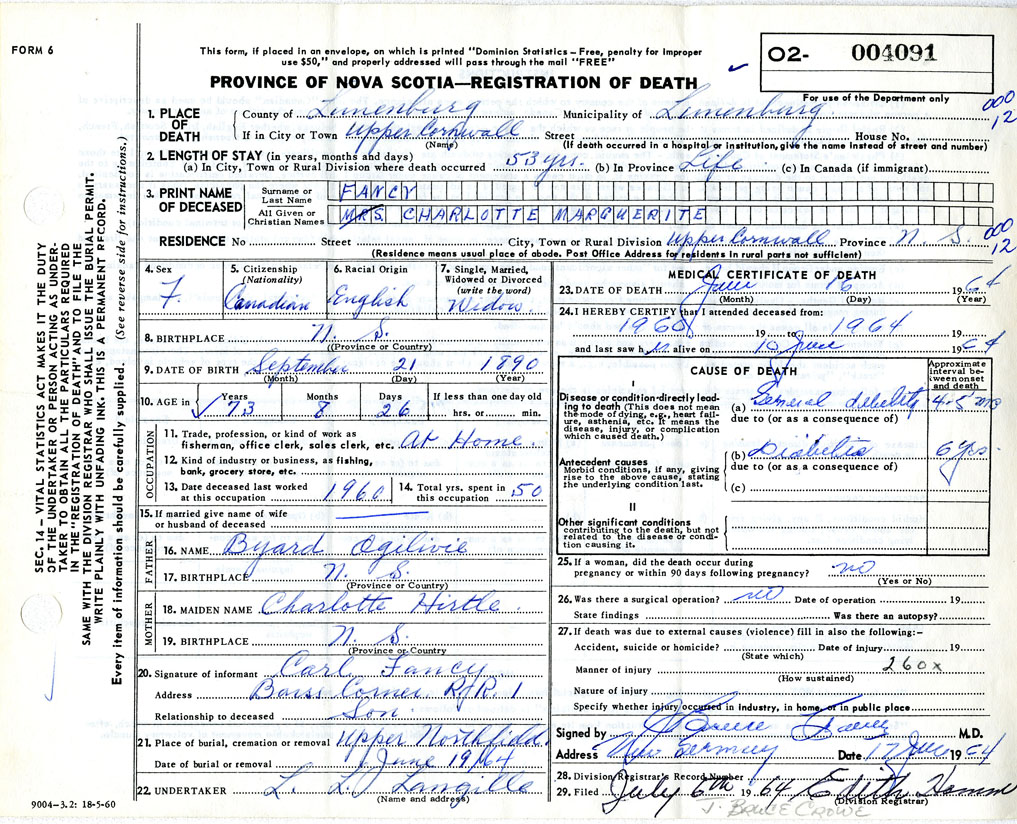 FORM 6
This form, if placed in an envelope, on which is printed "Dominion Statistics – Free, penalty for improper
use $50," and properly addressed will pass through the mail "FREE"
O2- 004091
PROVINCE OF NOVA SCOTIA—REGISTRATION OF DEATH
For use of the Department only
000
12
1. PLACE OF DEATH
County of Lunenburg Municipality of Lunenburg
If in City or Town Upper Cornwall Street House No.
(Name) (If death occurred in a hospital or institution, give the name instead of street and number)
2. LENGTH OF STAY (in years, months and days)
(a) In City, Town or Rural Division where death occurred 53 yrs. (b) In Province Life (c) In Canada (if immigrant)
3. PRINT NAME OF DECEASED
Surname or Last Name FANCY
All Given or Christian Names MRS. CHARLOTTE MARGUERITE
RESIDENCE No Street City, Town or Rural Division Upper Cornwall Province N. S.
000
12
(Residence means usual place of abode. Post Office Address for residents in rural parts not sufficient)
4. Sex F.
5. Citizenship (Nationality) Canadian
6. Racial Origin English
7. Single, Married, Widowed or Divorced (write the word) Widow.
8. BIRTHPLACE N. S.
(Province or Country)
9. DATE OF BIRTH September 21 1890
(Month) (Day) (Year)
10. AGE in Years 73 Months 8 Days 26 If less than one day old hrs. or min.
OCCUPATION
11. Trade, profession, or kind of work as
fisherman, office clerk, sales clerk, etc. At Home.
12. Kind of industry or business, as fishing,
bank, grocery store, etc.
13. Date deceased last worked at this occupation 1960
14. Total yrs. spent in this occupation 50
15. If married give name of wife
or husband of deceased
FATHER
16. NAME Byard Ogilivie
17. BIRTHPLACE N. S.
(Province or Country)
MOTHER
18. MAIDEN NAME Charlotte Hirtle.
19. BIRTHPLACE N. S.
(Province or Country
20. Signature of informant Carl Fancy
Address Barss Corner R.R. 1
Relationship to deceased Son
21. Place of burial, cremation or removal Upper Northfield.
Date of burial or removal June 19/64
22. UNDERTAKER L. L. Langille
(Name and address)
9004–3.2: 18-5-60
MEDICAL CERTIFICATE OF DEATH
23. DATE OF DEATH June 16 1964
(Month) (Day) (Year)
24. I HEREBY CERTIFY that I attended deceased from:
1960 19 to 1964 19
and last saw h alive on 10 June 1964
CAUSE OF DEATH
Approximate interval between onset and death
I
Disease or condition directly leading to death (This does not mean the mode of dying, e.g., heart failure, asthenia, etc. It means the disease, injury, or complication which caused death.)
(a) General debility 4-5 mo
due to (or as a consequence of)
Antecedent causes
Morbid conditions, if any, giving rise to the above cause, stating the underlying condition last.
(b) Diabetes 6 yrs.
due to (or as a consequence of)
(c)
II
Other significant conditions
contributing to the death, but not related to the disease or condition causing it.
25. If a woman, did the death occur during
pregnancy or within 90 days following pregnancy? no
(Yes or No)
26. Was there a surgical operation? no Date of operation 19
State findings Was there an autopsy?
27. If death was due to external causes (violence) fill in also the following:–
Accident, suicide or homicide? Date of injury 19
(State which)
Manner of injury 260x
(How sustained)
Nature of injury
Specify whether injury occurred in industry, in home, or in public place
Signed by M.D.
Address New Germany Date 17 June 1964
28. Division Registrar's Record Number
29. Filed July 6th 1964 Edith Hamm
(Division Registrar)
J. BRUCE CROWE
SEC. 14 – VITAL STATISTICS ACT MAKES IT THE DUTY
OF THE UNDERTAKER OR PERSON ACTING AS UNDER-
TAKER TO OBTAIN ALL THE PARTICULARS REQUIRED
IN THE "REGISTRATION OF DEATH" AND TO FILE THE
SAME WITH THE DIVISION REGISTRAR WHO SHALL ISSUE THE BURIAL PERMIT.
WRITE PLAINLY WITH UNFADING INK. THIS IS A PERMANENT RECORD.
Every item of information should be carefully supplied. (See reverse side for instructions.)